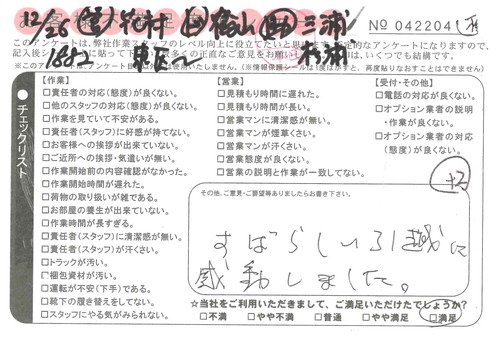 12/26 営 松山 三浦
1882 杉浦
No 042204
このアンケートは、弊社作業スタッフのレベル向上に役立てたいと
なアンケートになりますので、
記入後シー いくつでも結構です。
【作業】
□責任者の対応(態度)が良くない。
□他のスタッフの対応(態度)が良くない。
□作業を見ていて不安がある。
□責任者(スタッフ)に好感が持てない。
□お客様への挨拶が出来ていない。
□ご近所への挨拶・気遣いが無い。
□作業開始前の内容確認がなかった。
□作業開始時間が遅れた。
□荷物の取り扱いが雑である。
□お部屋の養生が出来ていない。
□作業時間が長すぎる。
□責任者(スタッフ)に清潔感が無い。
□責任者(スタッフ)が汗くさい。
□トラックが汚い。
□梱包資材が汚い。
□運転が不安(下手)である。
□靴下の履き替えをしてない。
□スタッフにやる気がみられない。
チェックリスト
【営業】
□見積もり時間に遅れた。
□見積もり時間が長い。
□営業マンに清潔感が無い。
□営業マンが煙草くさい。
□営業マンが汗くさい。
□営業態度が良くない。
□営業の説明と作業が一致してない。
【受付・その他】
□電話の対応が良くない。
□オプション業者の説明
・作業が良くない。
□オプション業者の対応
(態度)が良くない。
+2
その他、ご意見・ご要望等ありましたらお書き下さい。
すばらしい引越に
感動しました。
☆当社をご利用いただきまして、ご満足いただけたでしょうか?
□不満 □やや不満 □普通 □やや満足 □満足